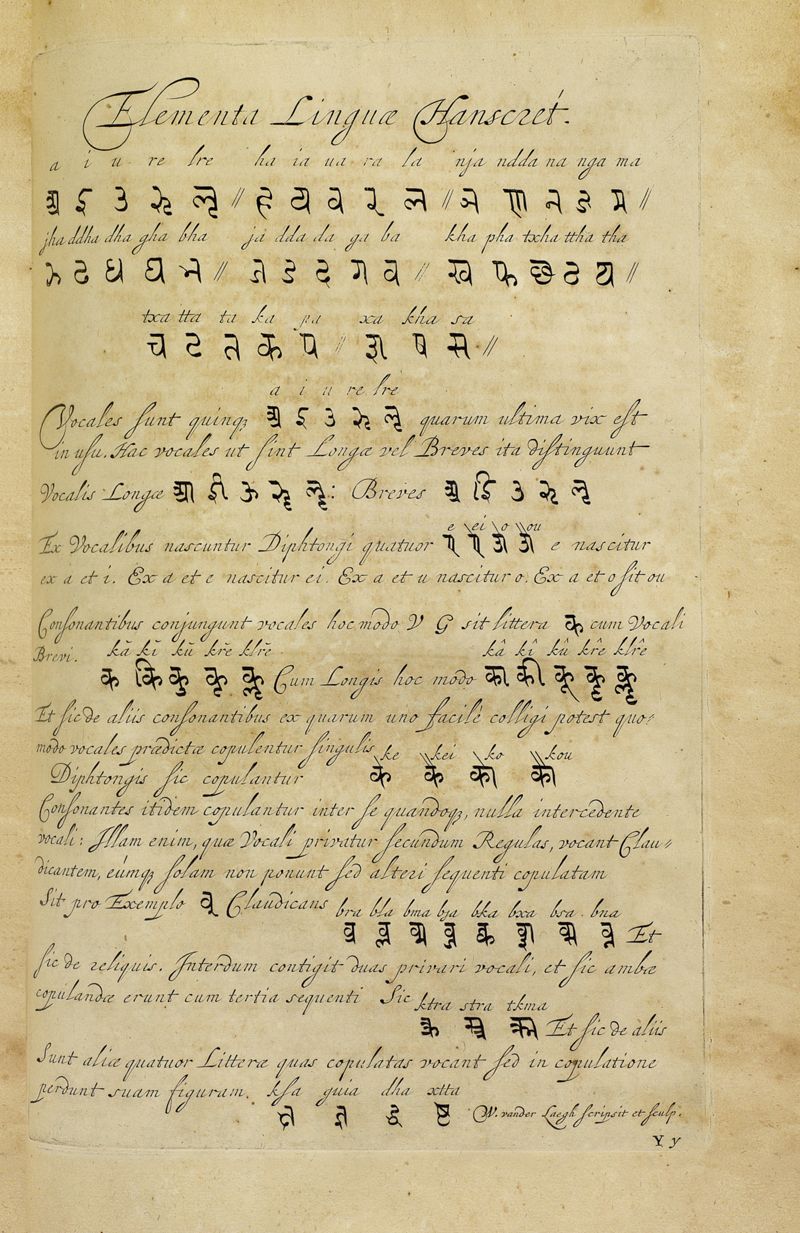 Elementa Linguæ Hanscret.
a i u re lre ha ia ua ra la nja ndda na nga ma
अ इ उ ऋ ऌ // ह य व र ल // ञ ण न ङ म //
jha ddha dha gha bha ja dda da ga ba kha pha txha ttha tha
झ ढ ध घ भ // ज ड द ग ब // ख फ छ ठ थ //
txa tta ta ka pa xa kha sa
च ट त क प // श ष स //
a i u re lre
Vocales sunt quinq3 अ इ उ ऋ ऌ quarum ultima vix est
in usu. Hac vocales ut sint Longæ vel Breves ita distinguunt
Vocalis Longæ आ ई ऊ ॠ ॡ: Breves अ इ उ ऋ ऌ
e ei o ou
Ex Vocalibus nascuntur Diphtongi quatuor ए ऐ ओ औ e nascitur
ex a et i. Ex a et e nascitur ei. Ex a et u nascitur o. Ex a et o fit ou
Consonantibus conjungunt vocales hoc modo V G sit littera क cum Vocali
Brevi. kă kĭ kŭ krĕ klrĕ kâ kî kû krê klrê
क कि कु कृ कॢ Cum Longis hoc modo का की कू कॄ कॣ
Et sic de aliis consonantibus ex quarum uno facilè colligi potest quo-
modo vocales prædictæ copulentur singulis ke kei ko kou
Diphtongis sic copulantur के कै को कौ
Consonantes itidem copulantur inter se quandoq3, nulla intercedente
vocali: Illam enim, quæ Vocali privatur secundum Regulas, vocant Clau-
dicantem, eumq3 solam non ponunt sed alteri sequenti copulatam
Sit pro Exemplo ब् Claudicans bra bla bma bja bka bxa bsa bna
ब्र ब्ल ब्म ब्य ब्क ब्श ब्स ब्न Et
sic de reliquis. Interdum contigit duas privari vocali, et sic ambæ
copulandæ erunt cum tertia sequenti Sic ktra stra tkma
क्त्र स्त्र त्क्म Et sic de aliis
Sunt aliæ quatuor Litteræ quas copulatas vocant sed in copulatione
perdunt suam figuram. kſa guia dha xtta
W. vander Laegh scripsit et sculp.
Y y